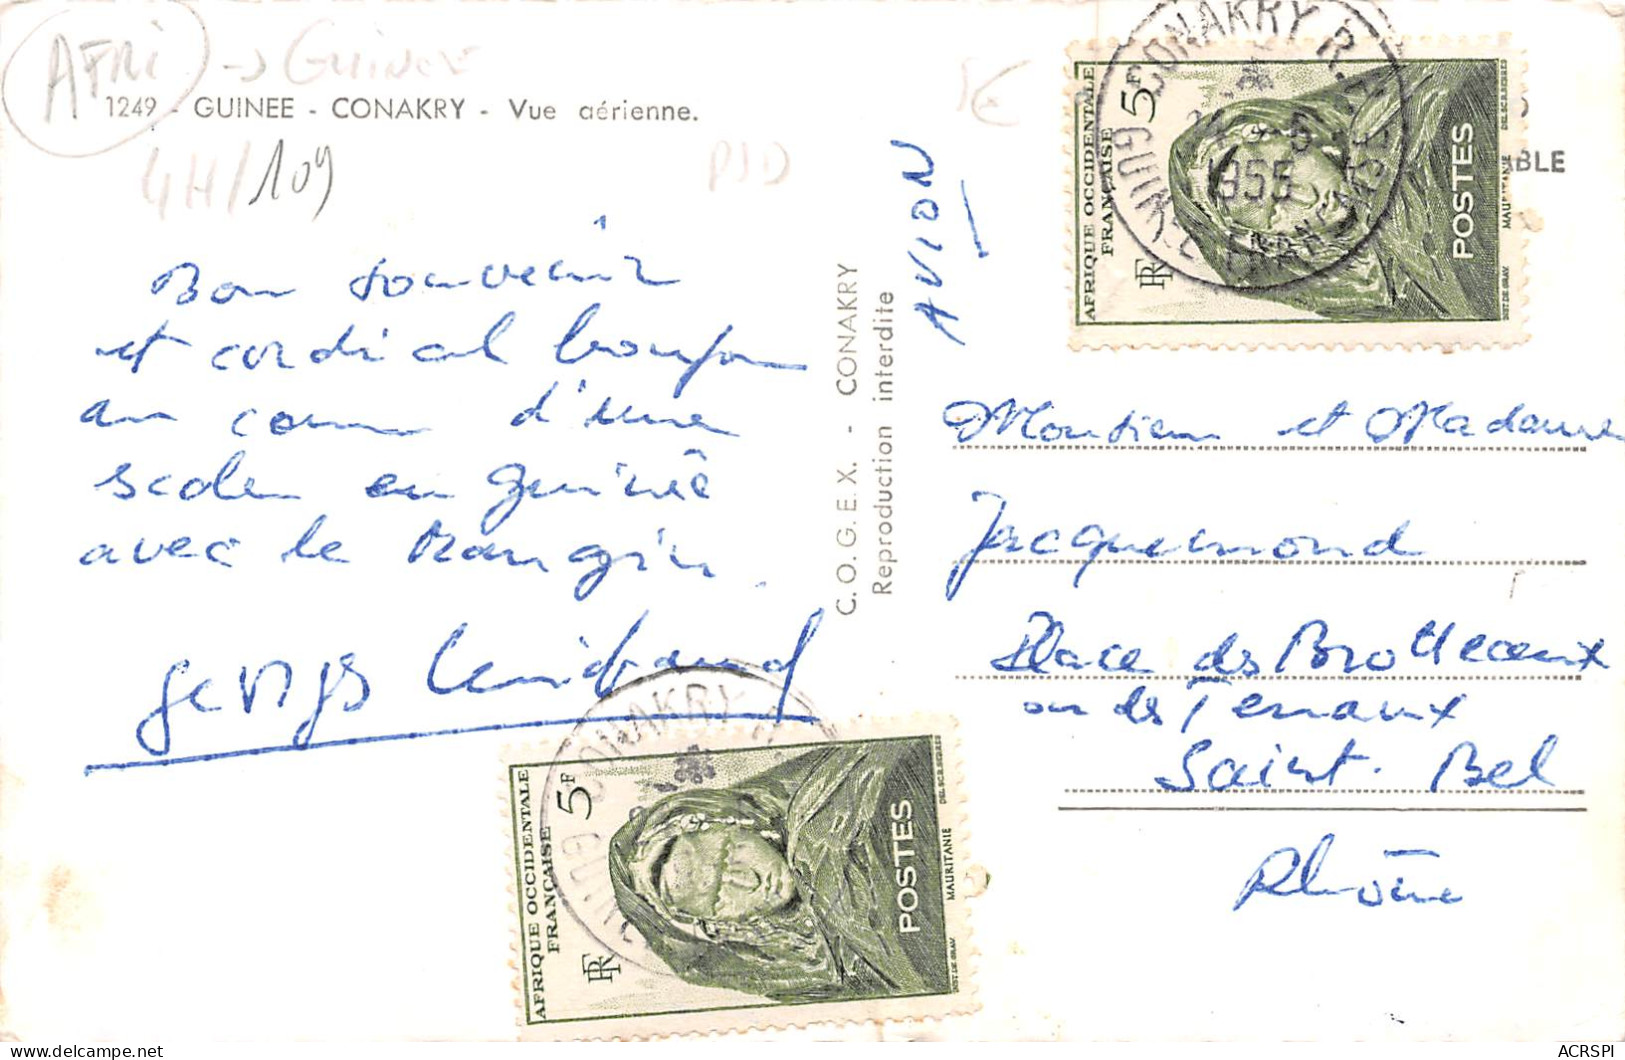 AFRI → Guinée
1249 - GUINEE - CONAKRY - Vue aérienne.
4H/109
€
Bon souvenir
et cordial bonjour
au cours d'une
escale en Guinée
avec le Mangin.
Georges
C.O.G.E.X. - CONAKRY
Reproduction interdite
AVION
CONAKRY R.P.
1955
GUINEE FRANCAISE
AFRIQUE OCCIDENTALE
FRANÇAISE
5F
RF
POSTES
MAURITANIE
BLE
Monsieur et Madame
Jacquemond
Place des Brotteaux
ou des Terreaux
Saint. Bel
Rhône
CONAKRY
GUINEE
AFRIQUE OCCIDENTALE
FRANÇAISE
5F
RF
POSTES
MAURITANIE
ACRSPI